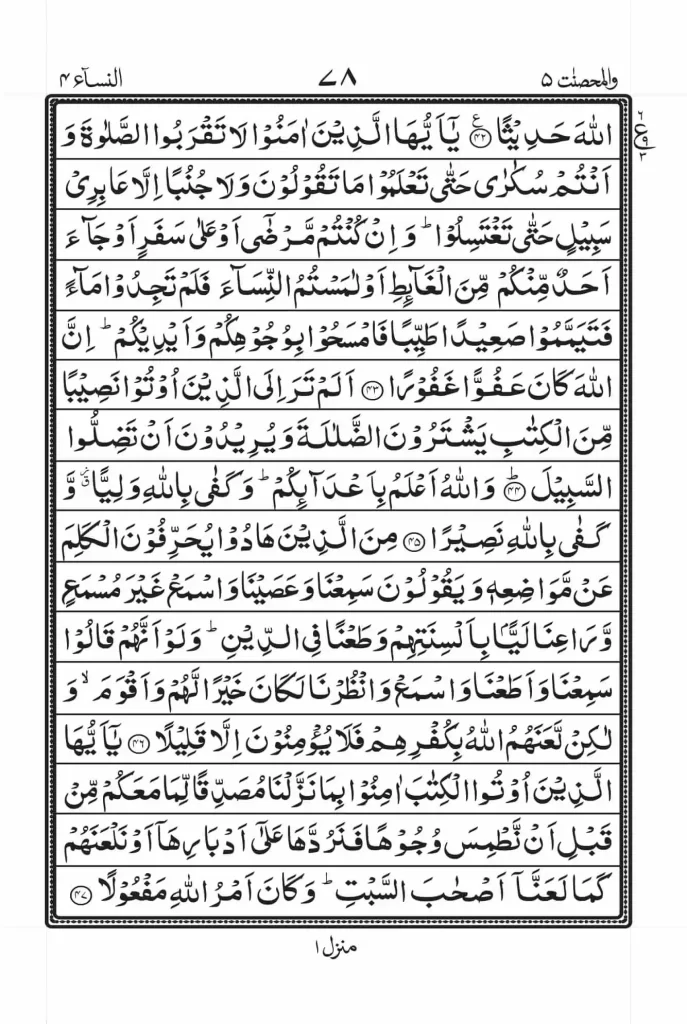 والمحصنت ۵ ۷۸ النسآء ۴
اللّٰهَ حَدِيْثًا ﴿۴۲﴾ ع يٰۤاَيُّهَا الَّذِيْنَ اٰمَنُوْا لَا تَقْرَبُوا الصَّلٰوةَ وَ
اَنْتُمْ سُكٰرٰى حَتّٰى تَعْلَمُوْا مَا تَقُوْلُوْنَ وَلَا جُنُبًا اِلَّا عَابِرِيْ
سَبِيْلٍ حَتّٰى تَغْتَسِلُوْا ؕ وَ اِنْ كُنْتُمْ مَّرْضٰۤى اَوْ عَلٰى سَفَرٍ اَوْ جَآءَ
اَحَدٌ مِّنْكُمْ مِّنَ الْغَآئِطِ اَوْ لٰمَسْتُمُ النِّسَآءَ فَلَمْ تَجِدُوْا مَآءً
فَتَيَمَّمُوْا صَعِيْدًا طَيِّبًا فَامْسَحُوْا بِوُجُوْهِكُمْ وَ اَيْدِيْكُمْ ؕ اِنَّ
اللّٰهَ كَانَ عَفُوًّا غَفُوْرًا ﴿۴۳﴾ اَلَمْ تَرَ اِلَى الَّذِيْنَ اُوْتُوْا نَصِيْبًا
مِّنَ الْكِتٰبِ يَشْتَرُوْنَ الضَّلٰلَةَ وَ يُرِيْدُوْنَ اَنْ تَضِلُّوا
السَّبِيْلَ ﴿۴۴﴾ؕ وَ اللّٰهُ اَعْلَمُ بِاَعْدَآئِكُمْ ؕ وَ كَفٰى بِاللّٰهِ وَلِيًّا ۗۙ وَّ
كَفٰى بِاللّٰهِ نَصِيْرًا ﴿۴۵﴾ مِنَ الَّذِيْنَ هَادُوْا يُحَرِّفُوْنَ الْكَلِمَ
عَنْ مَّوَاضِعِهٖ وَ يَقُوْلُوْنَ سَمِعْنَا وَ عَصَيْنَا وَ اسْمَعْ غَيْرَ مُسْمَعٍ
وَّ رَاعِنَا لَيًّۢا بِاَلْسِنَتِهِمْ وَ طَعْنًا فِى الدِّيْنِ ؕ وَ لَوْ اَنَّهُمْ قَالُوْا
سَمِعْنَا وَ اَطَعْنَا وَ اسْمَعْ وَ انْظُرْنَا لَكَانَ خَيْرًا لَّهُمْ وَ اَقْوَمَ ۙ وَ
لٰكِنْ لَّعَنَهُمُ اللّٰهُ بِكُفْرِهِمْ فَلَا يُؤْمِنُوْنَ اِلَّا قَلِيْلًا ﴿۴۶﴾ يٰۤاَيُّهَا
الَّذِيْنَ اُوْتُوا الْكِتٰبَ اٰمِنُوْا بِمَا نَزَّلْنَا مُصَدِّقًا لِّمَا مَعَكُمْ مِّنْ
قَبْلِ اَنْ نَّطْمِسَ وُجُوْهًا فَنَرُدَّهَا عَلٰۤى اَدْبَارِهَاۤ اَوْ نَلْعَنَهُمْ
كَمَا لَعَنَّاۤ اَصْحٰبَ السَّبْتِ ؕ وَ كَانَ اَمْرُ اللّٰهِ مَفْعُوْلًا ﴿۴۷﴾
منزل ۱